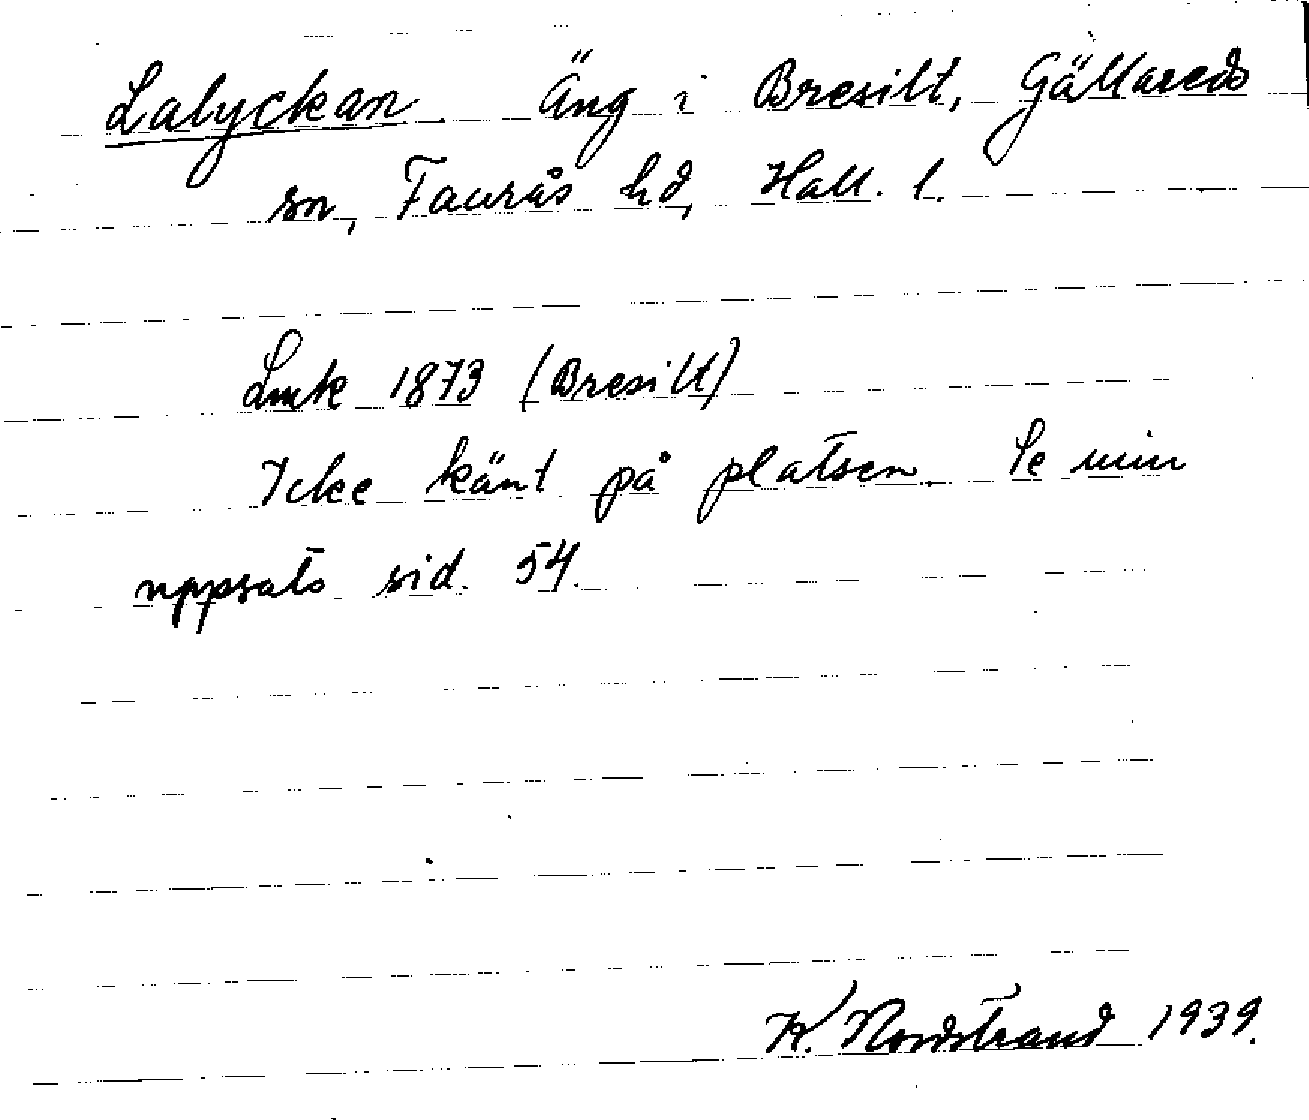 Lalyckan. Äng i Bresilt, Gällareds
sn, Faurås hd, Hall. l.
Lmtk 1873 (Bresilt)
Icke känt på platsen. Se min
uppsats sid. 54.
K. Nordstrand 1939.